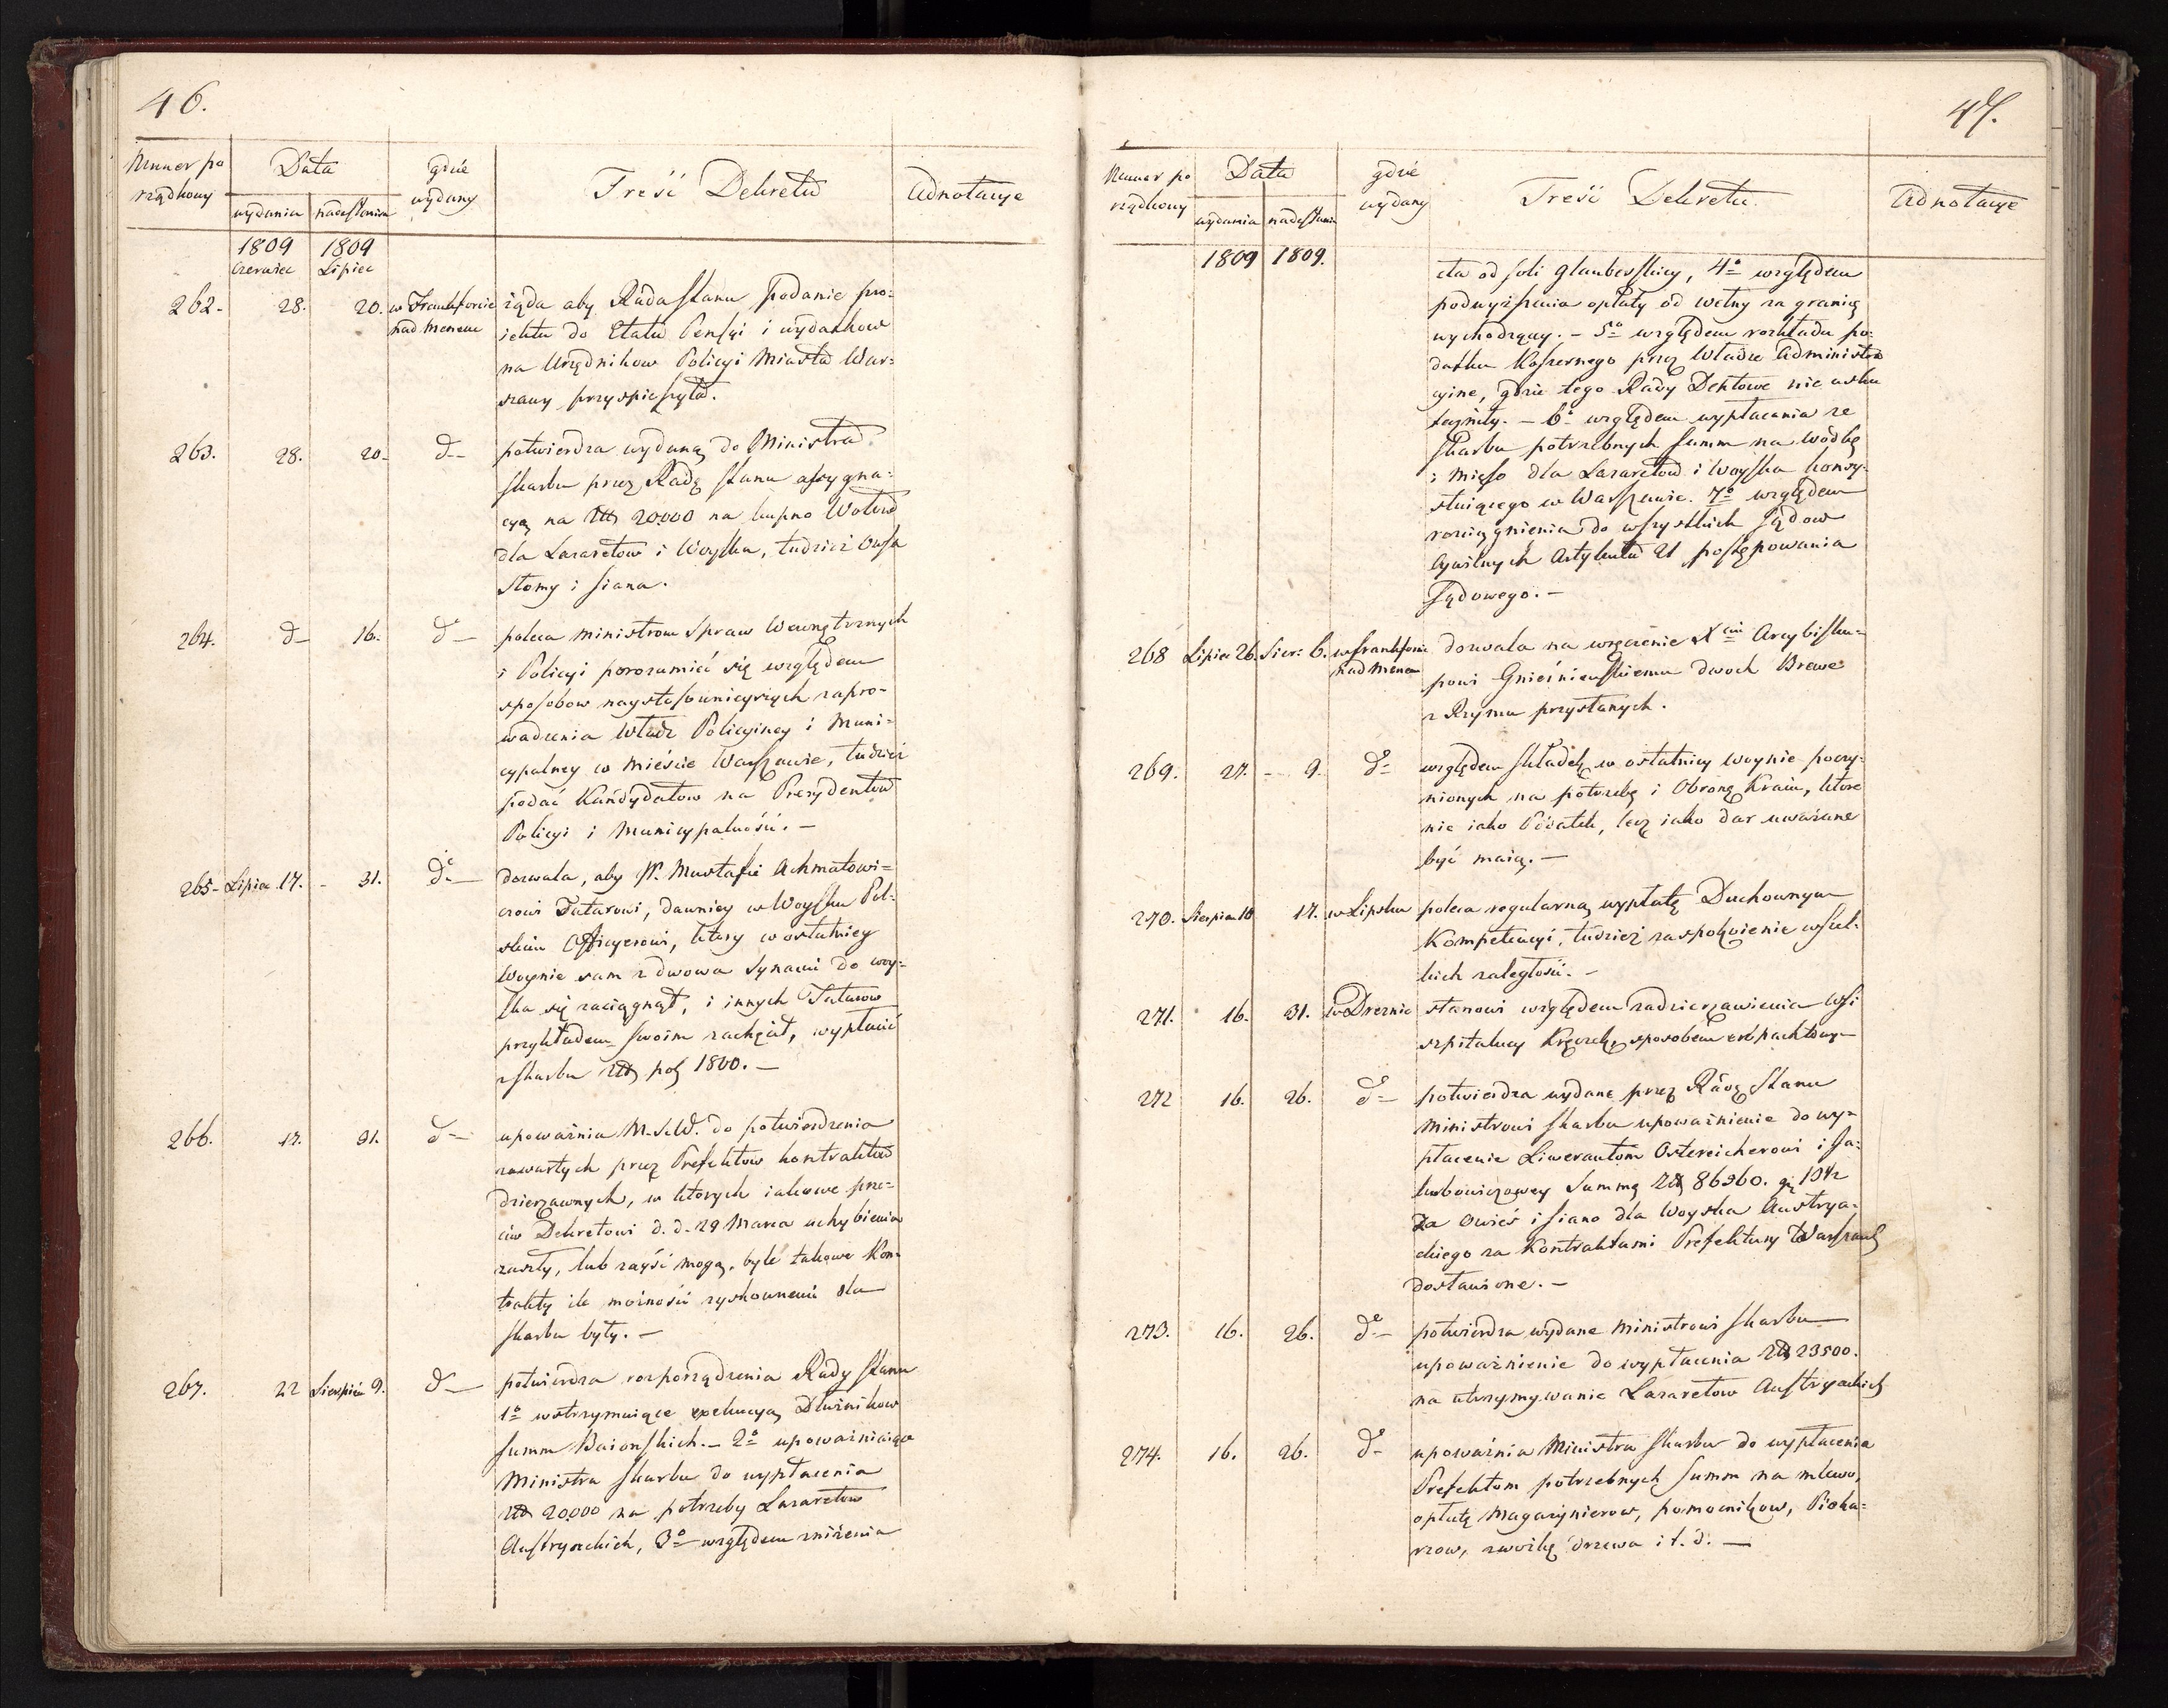 46.
Numer po
rządkowy
Data
wydania nadesłania
gdzie
wydany
Treść Dekretu
Adnotacye
1809 1809
Czerwiec Lipiec
262. 28. 20. w Frankforcie żąda aby Rada Stanu podanie pro=
nad Menem iektu do Etatu Pensyi i wydatkow
na Urzędnikow Policyi Miasta War=
szawy przyspieszyła.
263. 28. 20. do potwierdza wydaną do Ministra
Skarbu przez Radę Stanu assygna=
cyą na 20000 na kupno Wołów
dla Lazaretow i Woyska, tudzież Owsa
Słomy i siana.
264. do 16. do poleca Ministrom Spraw Wewnętrznych
i Policyi porozumieć się względem
sposobow naystosownieyszych zapro=
wadzenia Władz Policyiney i Muni=
cypalney w Mieście Warszawie, tudzież
podać Kandydatow na Prezydentów
Policyi i Municypalności. —
265. Lipiec 17. - 31. do dozwala, aby P. Mustafie Achmatowi=
czowi Tatarowi, dawniey w Woysku Pol=
skim Officyerowi, ktory w ostatniey
Woynie sam z dwoma Synami do woy=
ska się zaciągnął, i innych Tatarow
przykładem swoim zachęcał, wypłacić
z Skarbu pol 1800. —
266. 17. 31. do upoważnia M.S.W. do potwierdzenia
zawartych przez Prefektow kontraktów
dzierzawnych, w ktorych iakowe prze=
ciw Dekretowi d. d. 29 Marca uchybienia
zaszły, lub zayść mogą, byle takowe Kon=
trakty ile możności zyskownemi dla
Skarbu były. —
267. 22 Sierpień 9. do potwierdza rozporządzenia Rady Stanu
1o wstrzymuiące exekucyą Dłużnikow
Summ Baionskich. — 2o upoważniaiące
Ministra Skarbu do wypłacenia
20000 na potrzeby Lazaretow
Austryackich, 3o względem zniżenia
47.
Numer po
rządkowy
Data
wydania nadesłania
gdzie
wydany
Treść Dekretu
Adnotacye
1809 1809.
cła od soli glauberskiey, 4o względem
podwyższenia opłaty od wełny za granicę
wychodzącey. — 5o względem rozkładu po=
datku Koszernego przez Władze Administra
cyine, gdzie tego Rady Dektowe nie usku
teczniły. — 6o względem wypłacania ze
Skarbu potrzebnych Summ na wódkę
i mięso dla Lazaretow i Woyska konsy=
stuiącego w Warszawie. 7o względem
rozciągnienia do wszystkich Sądow
Cywilnych Artykułu 21 postępowania
Sądowego. —
268 Lipiec 26. Sier: 6. w Frankforcie dozwala na wręczenie Xciu Arcybisku=
nad Menem powi Gnieźnieńskiemu dwoch Brewe
z Rzymu przysłanych.
269. 27. - 9. do względem składek w ostatniey woynie poczy=
nionych na potrzebę i Obronę Kraiu, ktore
nie iako Podatek, lecz iako dar uważane
być maią. —
270. Sierpień 10 17. w Lipsku poleca regularną wypłatę Duchownym
Kompetencyi, tudzież zaspokoienie wszel=
kich zaległości. —
271. 16. 31. w Dreznie stanowi względem zadzierzawienia Wsi
szpitalney Kręczki, sposobem erbpachtowym
272 16. 26. do potwierdza wydane przez Radę Stanu
Ministrowi Skarbu upoważnienie do wy=
płacenie Liwerantom Ostereicherowi i Ja=
kubowiczowey Summę 86960. gr 10½
za owies i siano dla Woyska Austrya=
ckiego za Kontraktami Prefektury Warszaws
dostawione. —
273. 16. 26. do potwierdza wydane Ministrowi Skarbu
upoważnienie do wypłacenia 23500.
na utrzymywanie Lazaretow Austryackich
274. 16. 26. do upoważnia Ministra Skarbu do wypłacenia
Prefektom potrzebnych Summ na mlewo,
opłatę Magazynierow, pomocnikow, Pieka=
rzow, zwózkę drzewa i t. d. —